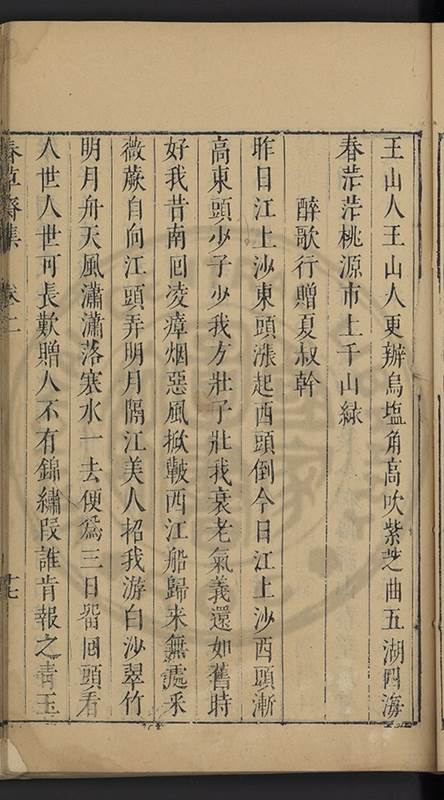 王山人王山人更辦烏塩角高吹紫芝曲五湖四海
春茫茫桃源市上千山綠
醉歌行贈夏叔幹
昨日江上沙東頭漲起西頭倒今日江上沙西頭漸
高東頭少子少我方壯子壯我衰老氣義還如舊時
好我昔南回凌瘴烟惡風掀簸西江船歸来無處采
薇蕨自向江頭弄明月隔江美人招我游白沙翠竹
明月舟天風瀟瀟落寒水一去便為三日畱回頭看
人世人世可長歎贈人不有錦繡段誰肯報之青玉
春草齋集 卷二 十七